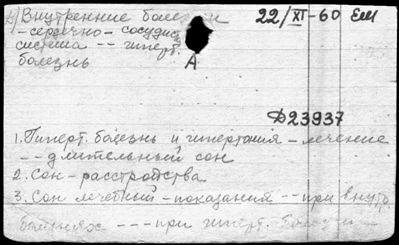 Внутренние болезни 22/XI-60
-сердечно-сосудист.
система -- гиперт.
болезнь
А
Д23937
1. Гиперт. болезнь и гипертония - лечение
-- длительный сон
2. Сон - расстройства
3. Сон лечебный - показания -- при внутр.
болезнях --- при гиперт. болезни